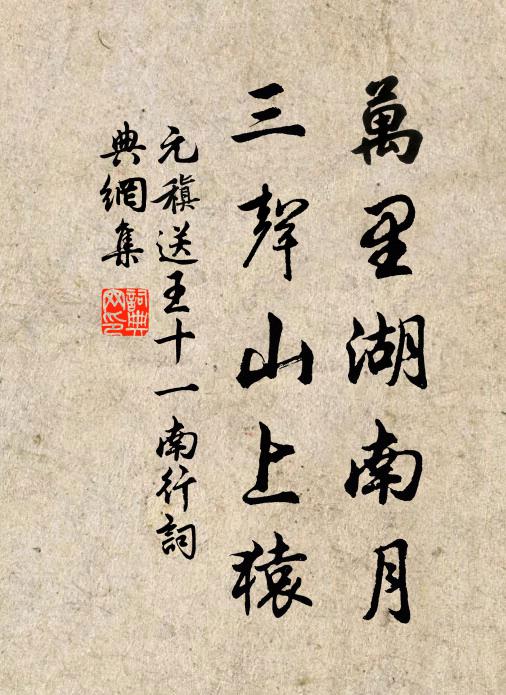 萬里湖南月
三聲山上猿
元稹送王十一南行詞
典網集
詞典
网印